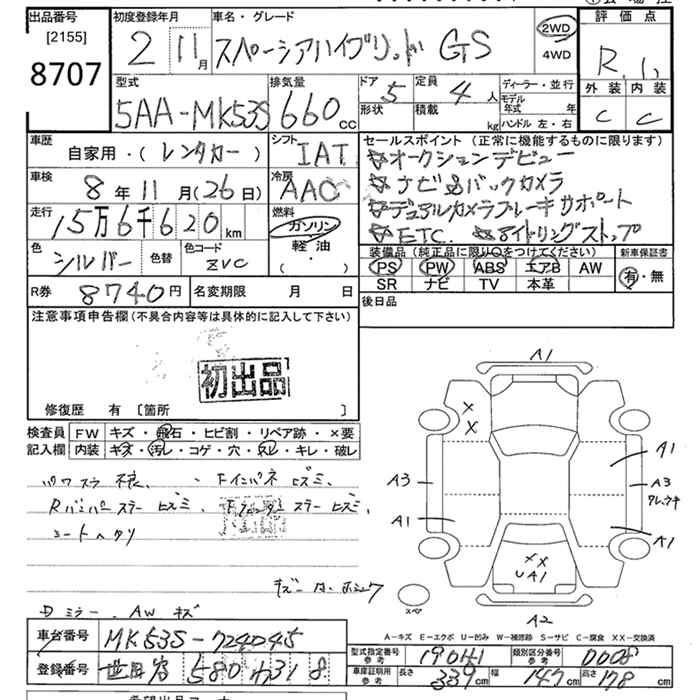 出品番号 初度登録年月 車名・グレード 評価点
[2155]
8707
2 11月 スペーシアハイブリッド GS 2WD 4WD
R.1.
外装 内装
C C
型式 排気量 ドア 定員 ディーラー・並行
5AA-MK53S 660cc 5 4人 モデル年式 年
形状 積載 kg ハンドル 左・右
車歴 自家用・(レンタカー) シフト IAT
セールスポイント (正常に機能するものに限ります)
☆オークションデビュー
車検 8年11月(26日) 冷房 AAC
☆ナビ&バックカメラ
走行 15万6千620km 燃料 ガソリン 軽油 (・)
☆デュアルカメラブレーキサポート
☆ETC. ☆アイドリングストップ
色 シルバー 色替 色コード ZVC
装備品 (純正品に限り○をつけてください) 新車保証書
PS PW ABS エアB AW 有・無
SR ナビ TV 本革
R券 8740円 名変期限 月 日
後日品
注意事項申告欄(不具合内容等は具体的に記入して下さい)
初出品
修復歴 有 [箇所 ]
検査員 FW キズ・飛石・ヒビ割・リペア跡・×要
記入欄 内装 キズ・汚レ・コゲ・穴・スレ・キレ・破レ
パワスラ不良、 Fインパネ ヒズミ、
Rバンパーステー ヒズミ、 ステー ヒズミ、
コートヘタリ
Dミラー、AWキズ
A1
A3
A1
A1
A3
A1
××
××
UA1
スペア
A2
A-キズ E-エクボ U-凹み W-補修跡 S-サビ C-腐食 XX-交換済
車台番号 MK53S-724045
型式指定番号 参考 19041 類別区分番号 参考 0008
登録番号 580 わ 318
車庫証明用 参考 長さ 339cm 幅 147cm 高さ 178cm